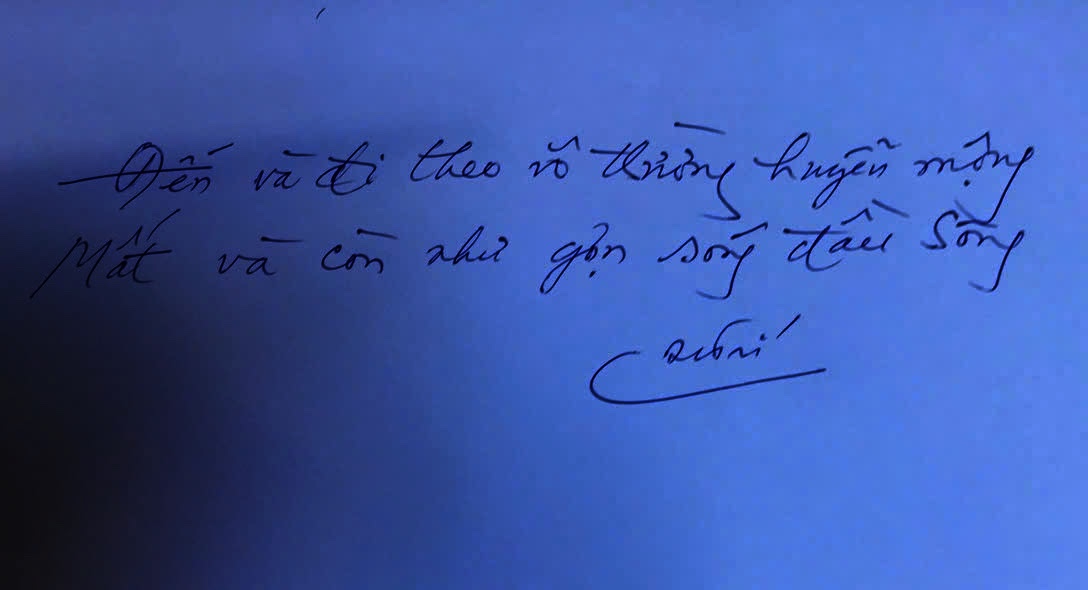 Đến và đi theo vô thường huyễn mộng
Mất và còn như gợn sóng đầu sông